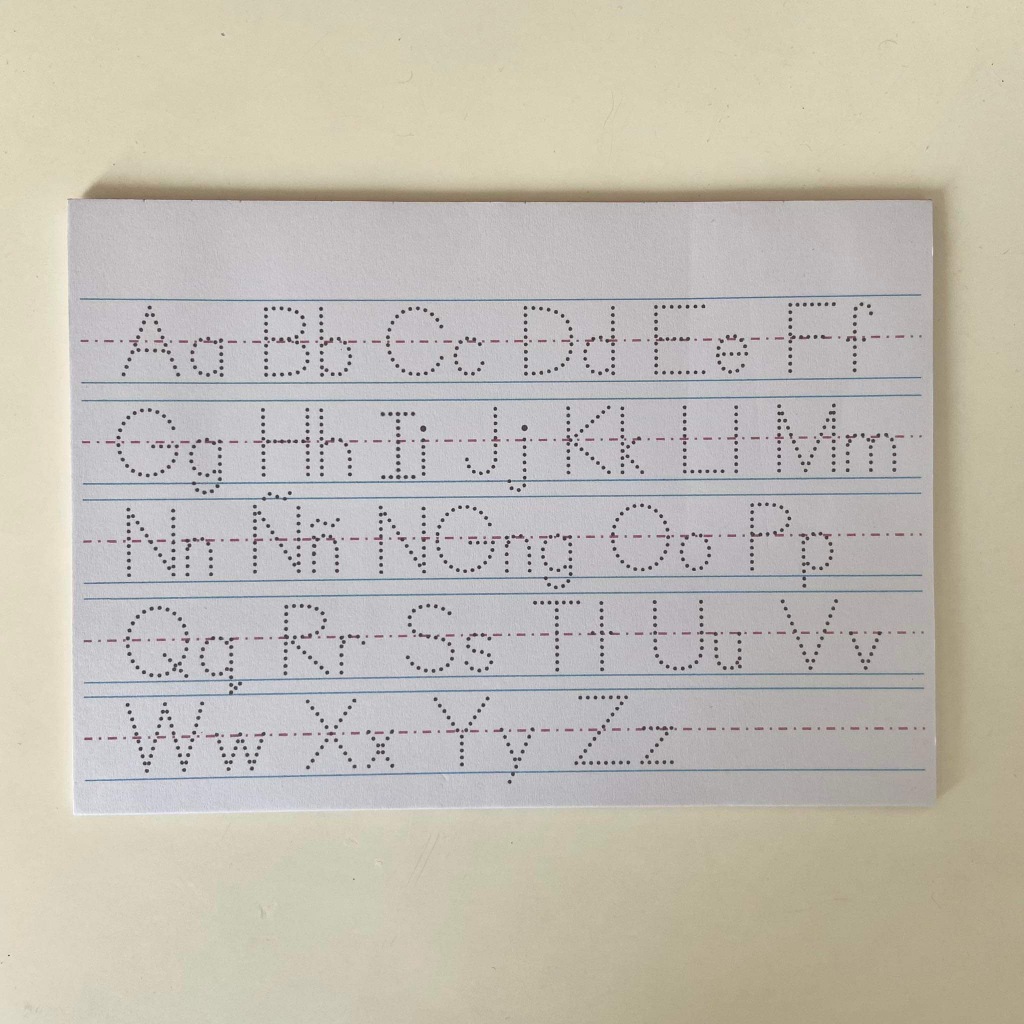 Aa Bb Cc Dd Ee Ff
Gg Hh Ii Jj Kk Ll Mm
Nn Ññ NGng Oo Pp
Qq Rr Ss Tt Uu Vv
Ww Xx Yy Zz